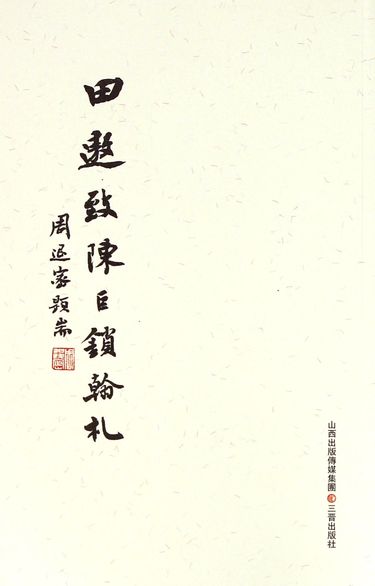 田遨致陳巨鎖翰札
周退密題耑
山西出版傳媒集團 三晉出版社